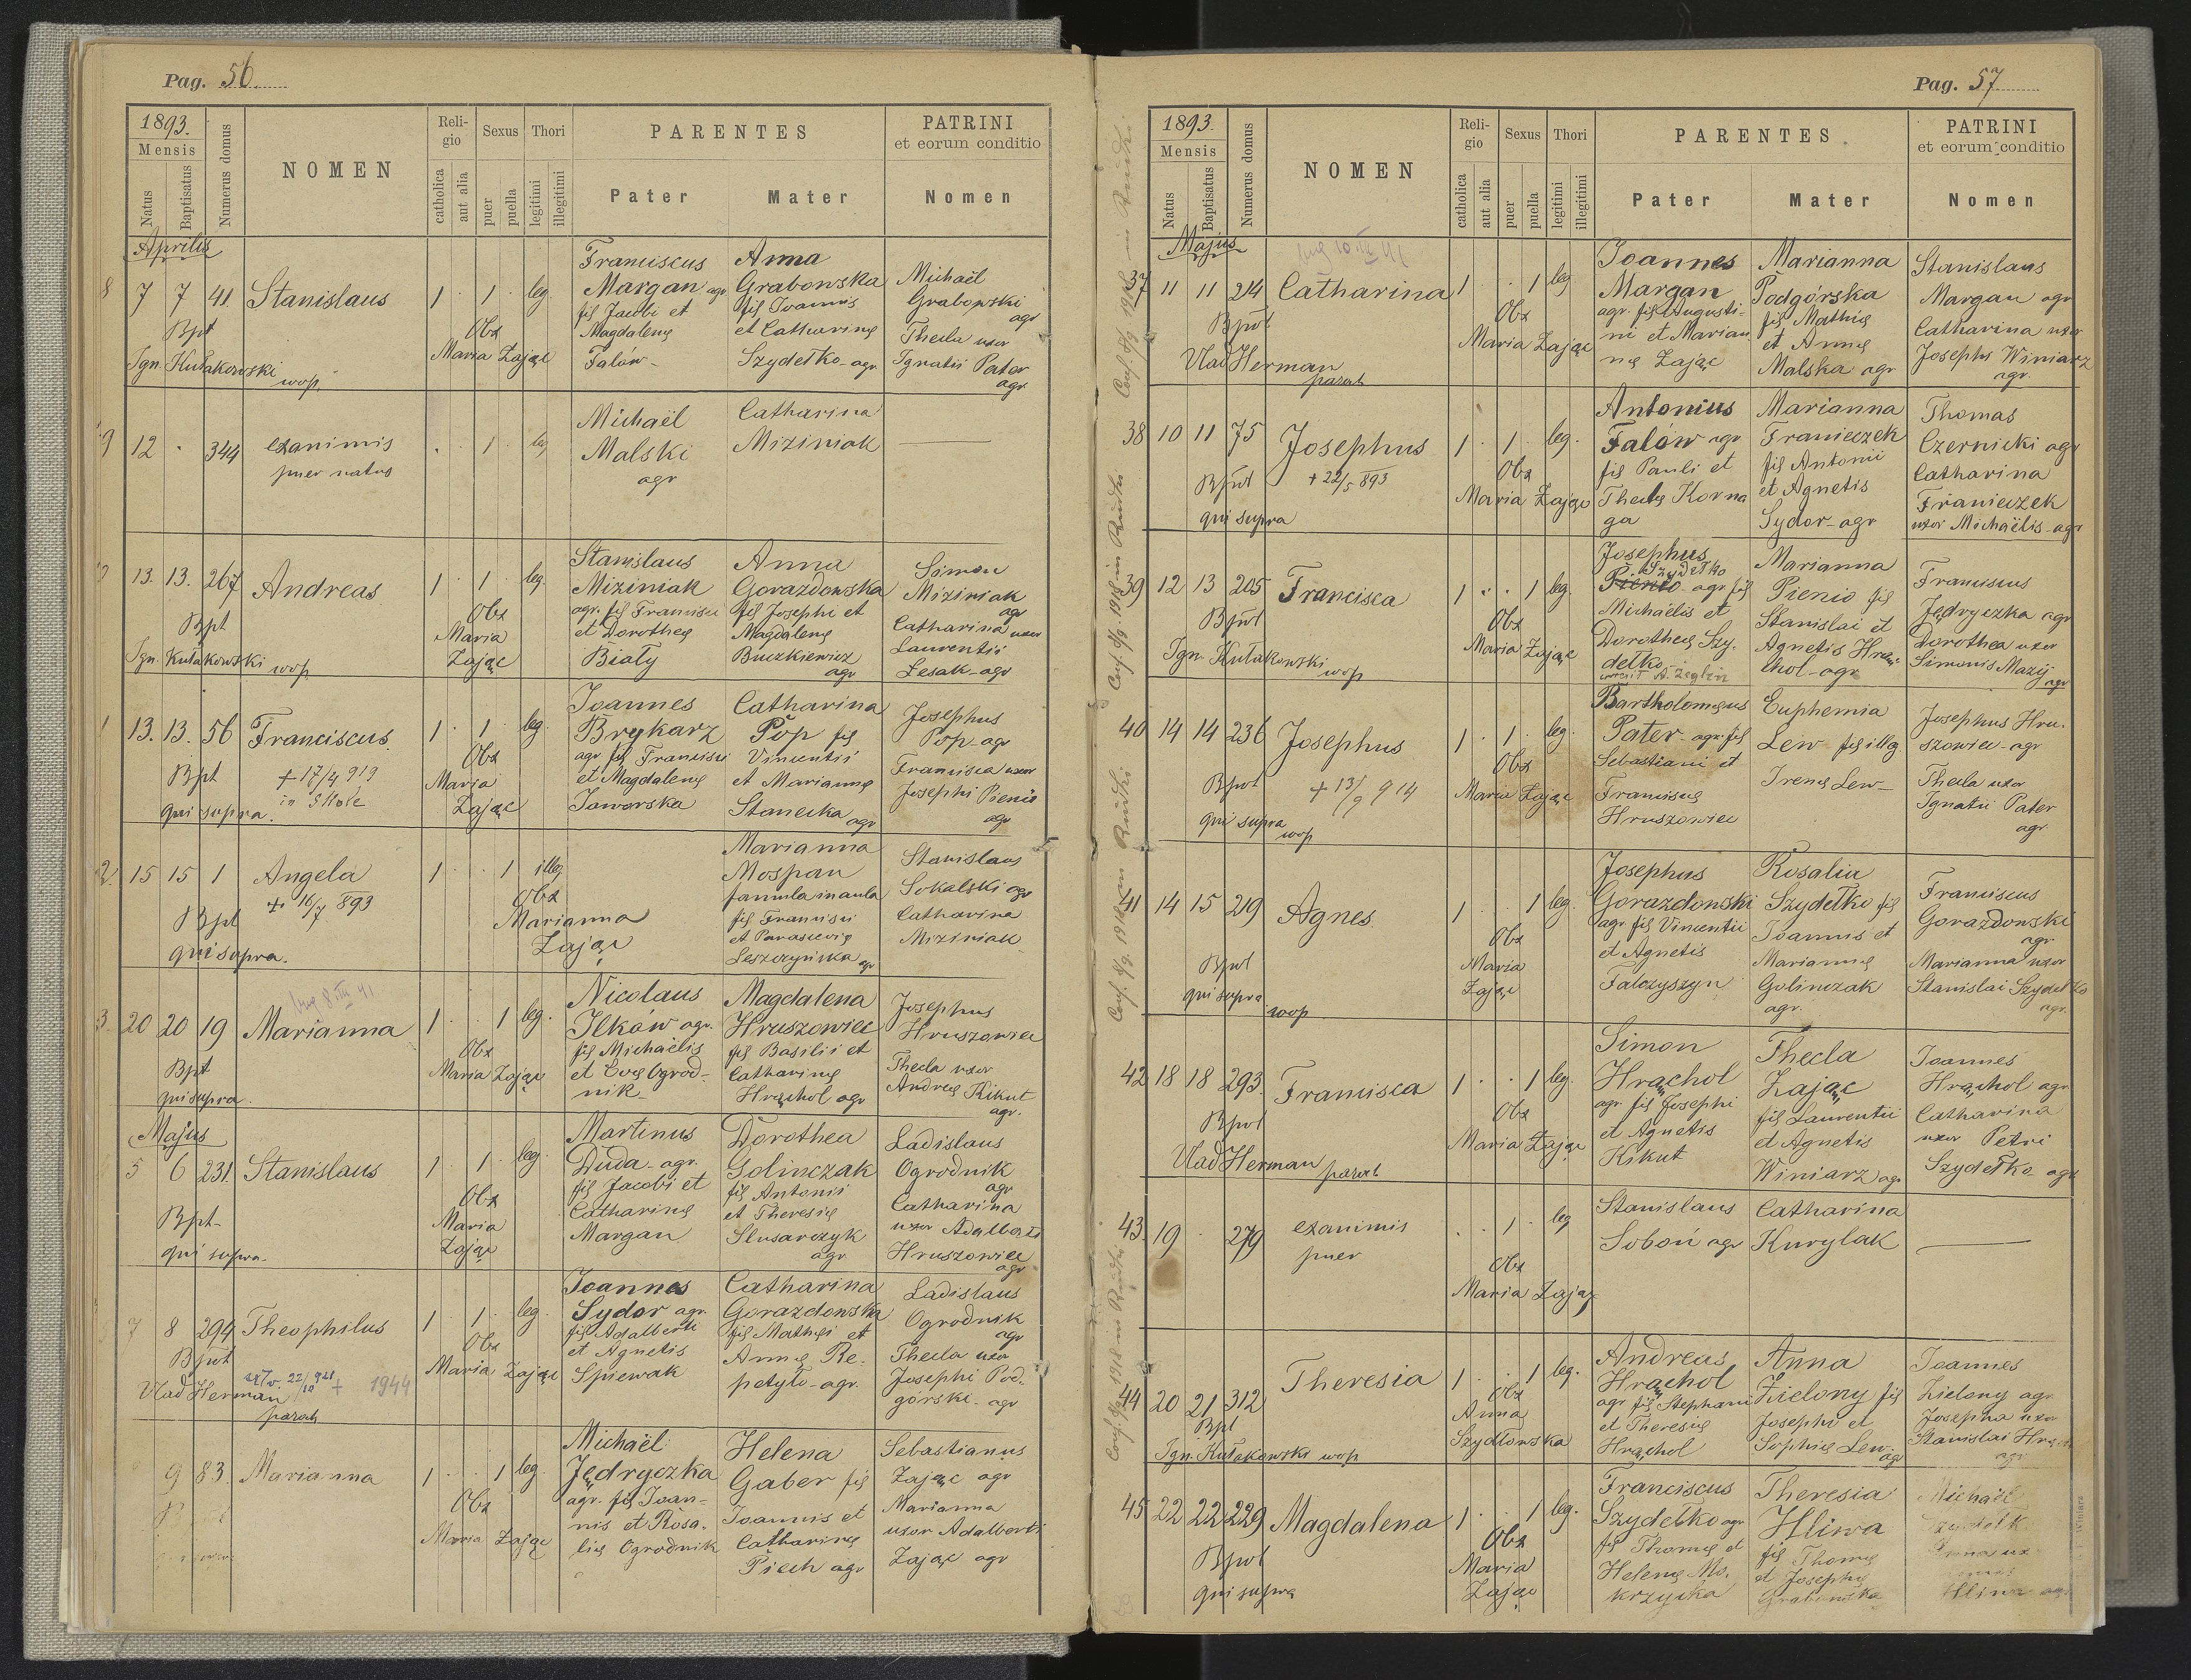 Pag. 56.
1893.
Mensis
Natus
Baptisatus
Numerus domus
NOMEN
Reli-
gio
catholica
aut alia
Sexus
puer
puella
Thori
legitimi
illegitimi
PARENTES
Pater
Mater
PATRINI
et eorum conditio
Nomen
Aprilis
8 7 7 41 Stanislaus 1 . 1 . leg
Bpt
Ign. Kułakowski
wop
Obs
Maria Zając
Franciscus
Margan agr
fil Jacobi et
Magdalenę
Falów
Anna
Grabowska
fil Joannis
et Catharinę
Szydełko agr
Michaël
Grabowski
agr
Thecla uxor
Ignatii Pater
agr
9 12 . 344 exanimis
puer natus
. . 1 . leg
Michaël
Malski
agr
Catharina
Miziniak
13. 13. 267 Andreas 1 . 1 . leg.
Bpt
Ign. Kułakowski wop
Obs
Maria
Zając
Stanislaus
Miziniak
agr. fil Francisci
et Dorotheę
Biały
Anna
Gorazdowska
fil Josephi et
Magdalenę
Buczkiewicz
agr
Simon
Miziniak
agr
Catharina uxor
Laurentii
Lesak agr
1 13. 13. 56 Franciscus 1 . 1 . leg.
+ 17/4 919
in Skole
Bpt
qui supra.
Obs
Maria
Zając
Joannes
Brykarz
agr fil Francisci
et Magdalenę
Jaworska
Catharina
Pop fil
Vincentii
et Mariannę
Stanecka agr
Josephus
Pop agr
Francisca uxor
Josephi Pienio
agr
2. 15 15 1 Angela 1 . . 1 illeg
+ 16/7 893
Bpt
qui supra.
Obs
Marianna
Zając
Marianna
Mospan
famula in aula
fil Francisci
et Parascevię
Leszczyńska agr
Stanislaus
Sokalski agr
Catharina
Miziniak
3. 20 20 19 Marianna 1 . . 1 leg.
Bpt
qui supra.
Obs
Maria Zając
Nicolaus
Ilków agr.
fil Michaëlis
et Evę Ogrod-
nik
Magdalena
Hruszowiec
fil Basilii et
Catharinę
Hrąchol agr
Josephus
Hruszowiec
Thecla uxor
Andreę Kikut
agr.
Majus
5 6 231. Stanislaus 1 . 1 . leg.
Bpt
qui supra.
Obs
Maria
Zając
Martinus
Duda agr.
fil Jacobi et
Catharinę
Margan
Dorothea
Golinczak
fil Antonii
et Theresię
Slusarczyk
agr
Ladislaus
Ogrodnik
agr
Catharina
uxor Adalberti
Hruszowiec
agr
7 8 294 Theophilus 1 . 1 . leg.
Bpt
Vlad Herman
paroch
+ 1944
Obs
Maria Zając
Joannes
Sydor agr.
fil Adalberti
et Agnetis
Spiewak
Catharina
Gorazdowska
fil Mathęi et
Annę Re-
petyło agr.
Ladislaus
Ogrodnik
agr
Thecla uxor
Josephi Pod-
górski agr
9 83. Marianna 1 . . 1 leg.
Obs
Maria Zając
Michaël
Jędryczka
agr. fil Joan-
nis et Rosa-
lię Ogrodnik
Helena
Gaber fil
Joannis et
Catharinę
Piech agr
Sebastianus
Zając agr
Marianna
uxor Adalberti
Zając agr
Pag. 57
1893.
Mensis
Natus
Baptisatus
Numerus domus
NOMEN
Reli-
gio
catholica
aut alia
Sexus
puer
puella
Thori
legitimi
illegitimi
PARENTES.
Pater
Mater
PATRINI
et eorum conditio
Nomen
Majus
37 11 11 214 Catharina 1 . . 1 leg
Bpt
Vlad Herman
paroch
Obs
Maria Zając
Joannes
Margan
agr. fil Augusti-
ni et Marian-
nę Zając
Marianna
Podgórska
fil Mathię
et Annę
Malska agr
Stanislaus
Margan agr
Catharina uxor
Josephi Winiarz
agr.
38 10 11 75 Josephus 1 . 1 . leg.
+ 22/5 893
Bpt
qui supra
Obs
Maria Zając
Antonius
Falów agr
fil Pauli et
Theclę Korna
ga
Marianna
Franieczek
fil Antonii
et Agnetis
Sydor agr
Thomas
Czernicki agr
Catharina
Franieczek
uxor Michaëlis agr
39 12 13 205 Francisca 1 . . 1 leg.
Bpt
Ign. Kułakowski
wop
Obs
Maria Zając
Josephus
Szydełko
Pienio agr fil
Michaëlis et
Dorotheę Szy-
dełko
Marianna
Pienio fil
Stanislai et
Agnetis Hrą-
chol agr
Franciscus
Jędryczka agr
Dorothea uxor
Simonis Mazij
agr
40 14 14 236 Josephus 1 . 1 . leg.
+ 13/9 914
Bpt
qui supra
wop
Obs
Maria Zając
Bartholomęus
Pater agr. fil
Sebastiani et
Franciscę
Hruszowiec
Euphemia
Lew fil illeg.
Irenę Lew
Josephus Hru-
szowiec agr
Thecla uxor
Ignatii Pater
agr
41 14 15 219 Agnes 1 . . 1 leg.
Bpt
qui supra
wop
Obs
Maria
Zając
Josephus
Gorazdowski
agr. fil Vincentii
et Agnetis
Falczyszyn
Rosalia
Szydełko fil
Joannis et
Mariannę
Golinczak
agr.
Franciscus
Gorazdowski
agr
Marianna uxor
Stanislai Szydełko
agr.
42 18 18 293. Francisca 1 . . 1 leg.
Bpt
Vlad Herman
paroch
Obs
Maria Zając
Simon
Hrąchol
agr. fil Josephi
et Agnetis
Kikut
Thecla
Zając
fil Laurentii
et Agnetis
Winiarz agr
Joannes
Hrąchol agr
Catharina
uxor Petri
Szydełko agr
43. 19 . 279 exanimis
puer
. . 1 . leg
Obs
Maria Zając
Stanislaus
Soboń agr
Catharina
Kurylak
44 20 21 312 Theresia 1 . . 1 leg.
Bpt
Ign. Kułakowski wop
Obs
Anna
Szydłowska
Andreas
Hrąchol
agr fil Stephani
et Theresię
Hrąchol
Anna
Zielony fil
Josephi et
Sophię Lew
agr
Joannes
Zielony agr
Josepha uxor
Stanislai
agr
45 22 22 229 Magdalena 1 . . 1 leg.
Bpt
qui supra
Obs
Maria
Zając
Franciscus
Szydełko agr
fil Thomę et
Helenę Mo-
krzycka
Theresia
Hliwa
fil Thomę
et Josephę
Grabowska
Michaël
Hliwa